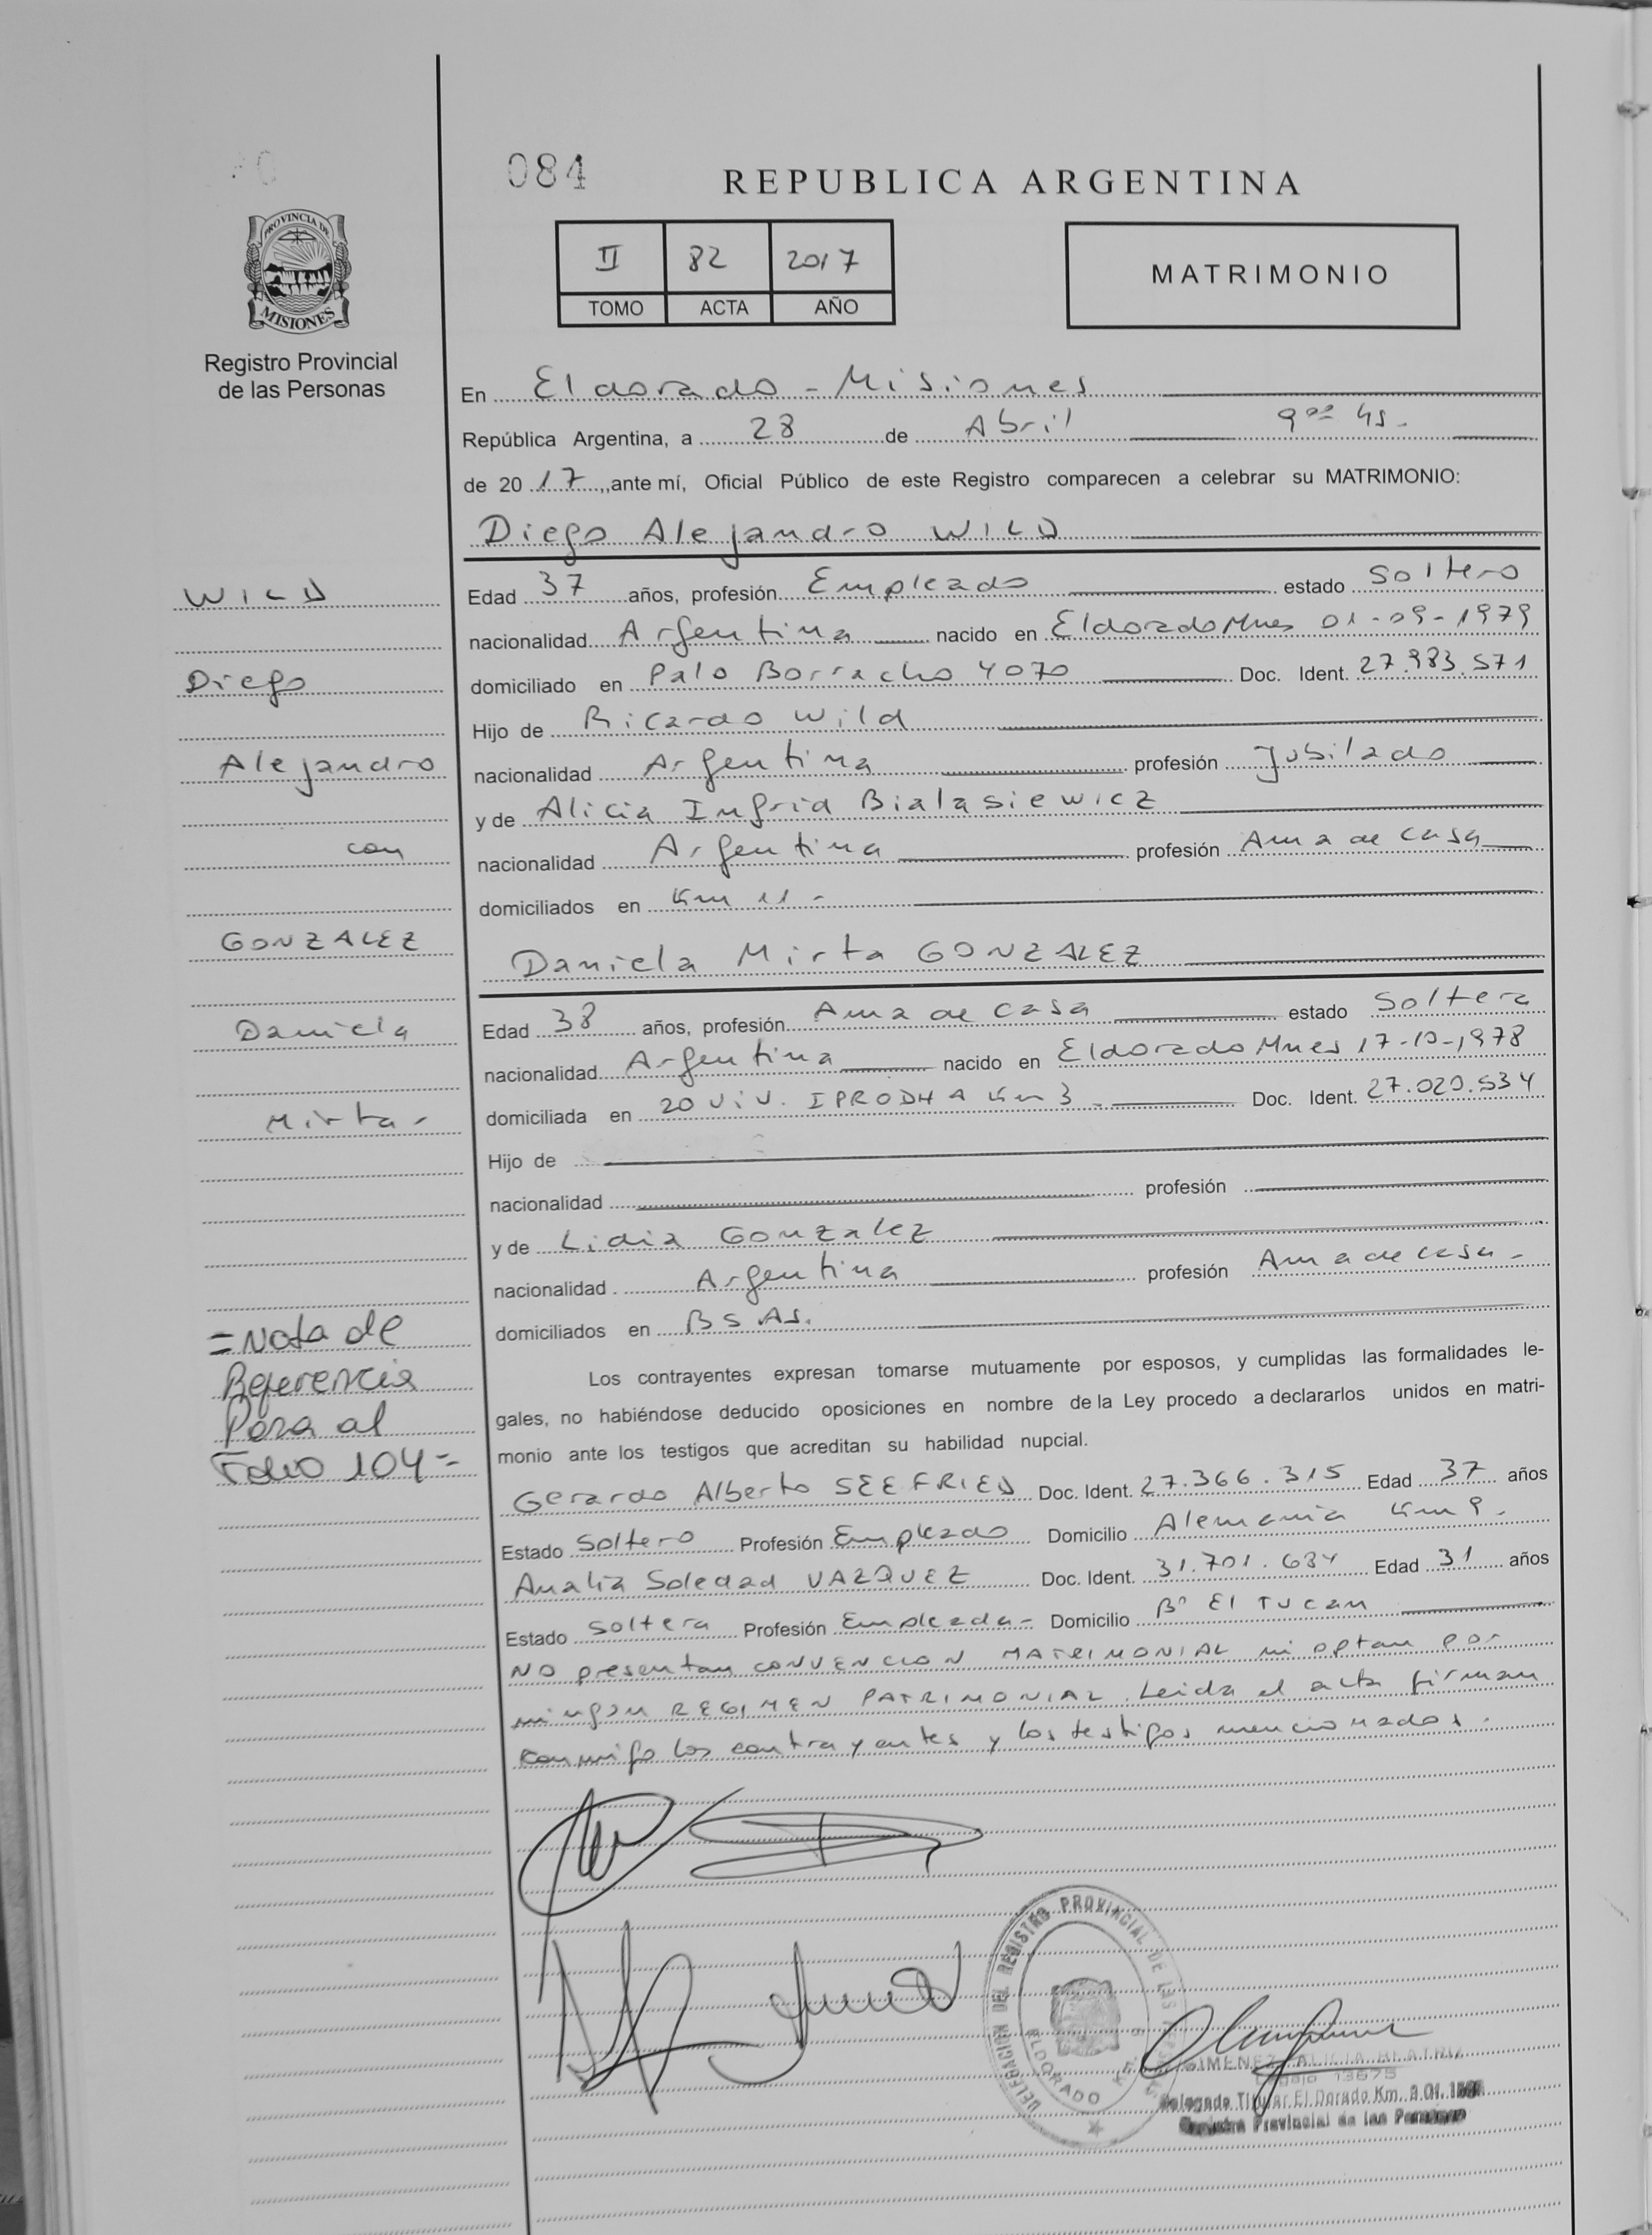 084
REPUBLICA ARGENTINA
II 82 2017
TOMO ACTA AÑO
MATRIMONIO
PROVINCIA DE
MISIONES
Registro Provincial
de las Personas
En Eldorado - Misiones
República Argentina, a 28 de Abril 9 00 hs.
de 20 17, ante mí, Oficial Público de este Registro comparecen a celebrar su MATRIMONIO:
Diego Alejandro WILD
Edad 37 años, profesión Empleado estado Soltero
nacionalidad Argentina nacido en Eldorado Mnes 01-09-1979
domiciliado en Palo Borracho 4070 Doc. Ident. 27.983.571
Hijo de Ricardo Wild
nacionalidad Argentina profesión Jubilado
y de Alicia Ingrid Bialasiewicz
nacionalidad Argentina profesión Ama de casa
domiciliados en Km 11 -
Daniela Mirta GONZALEZ
Edad 38 años, profesión Ama de casa estado Soltera
nacionalidad Argentina nacido en Eldorado Mnes 17-10-1978
domiciliada en 20 Viv. IPRODHA Km 3 - Doc. Ident. 27.020.534
Hijo de
nacionalidad profesión
y de Lidia Gonzalez
nacionalidad Argentina profesión Ama de casa -
domiciliados en BS AS.
Los contrayentes expresan tomarse mutuamente por esposos, y cumplidas las formalidades le-
gales, no habiéndose deducido oposiciones en nombre de la Ley procedo a declararlos unidos en matri-
monio ante los testigos que acreditan su habilidad nupcial.
Gerardo Alberto SEEFRIED Doc. Ident. 27.366.315 Edad 37 años
Estado Soltero Profesión Empleado Domicilio Alemania Km 9 -
Analia Soledad VAZQUEZ Doc. Ident. 31.701.634 Edad 31 años
Estado Soltera Profesión Empleada - Domicilio Bº El Tucan
NO presentan CONVENCION MATRIMONIAL ni optan por
ningún REGIMEN PATRIMONIAL. Leida el acta firman
conmigo los contrayentes y los testigos mencionados.
WILD
Diego
Alejandro
con
GONZALEZ
Daniela
Mirta -
= Nota de
Referencia
Pasa al
Folio 104 =
DELEGACION DEL REGISTRO PROVINCIAL DE LAS
ELDORADO
GIMENEZ ALICIA BEATRIZ
Legajo 13675
Delegado Titular El Dorado Km. 9 Of.
Registro Provincial de las Personas